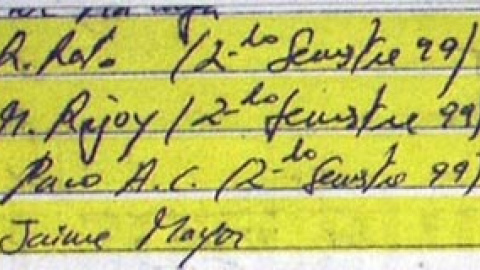 R. Rato (2-do Semestre 99)
M. Rajoy (2-do Semestre 99)
Paco A.C. (2-do Semestre 99)
Jaime Mayor